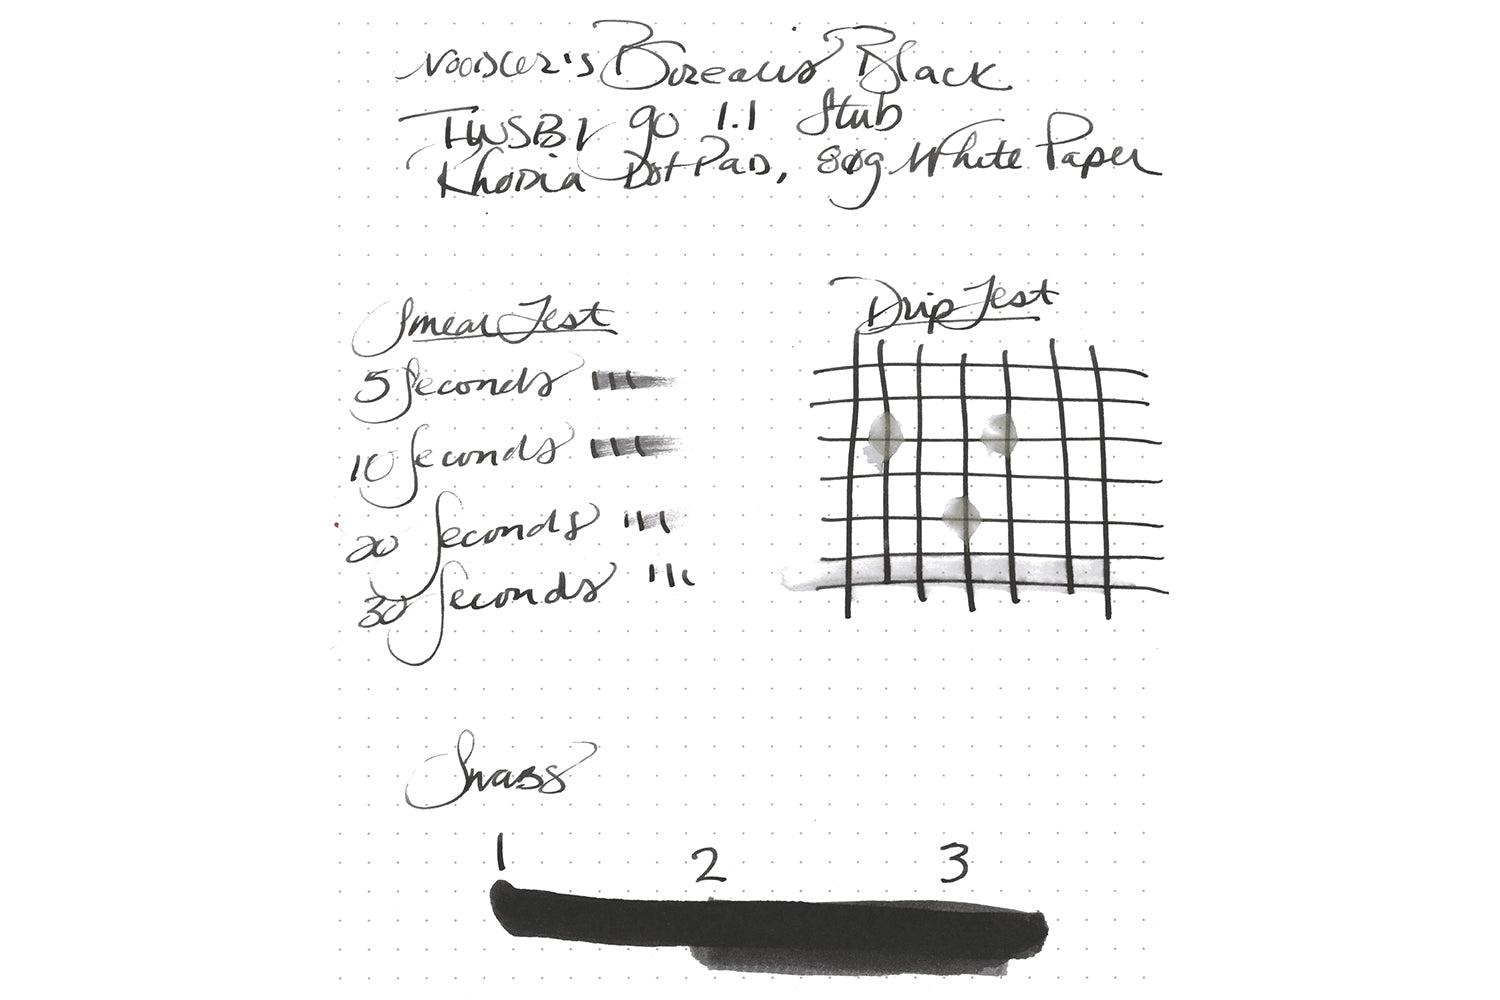 Noodler's Borealis Black
TWSBI go 1.1 Stub
Rhodia DotPad, 80g White Paper
Smear Test
5 Seconds
10 Seconds
20 Seconds
30 Seconds
Drip Test
Swabs
1 2 3